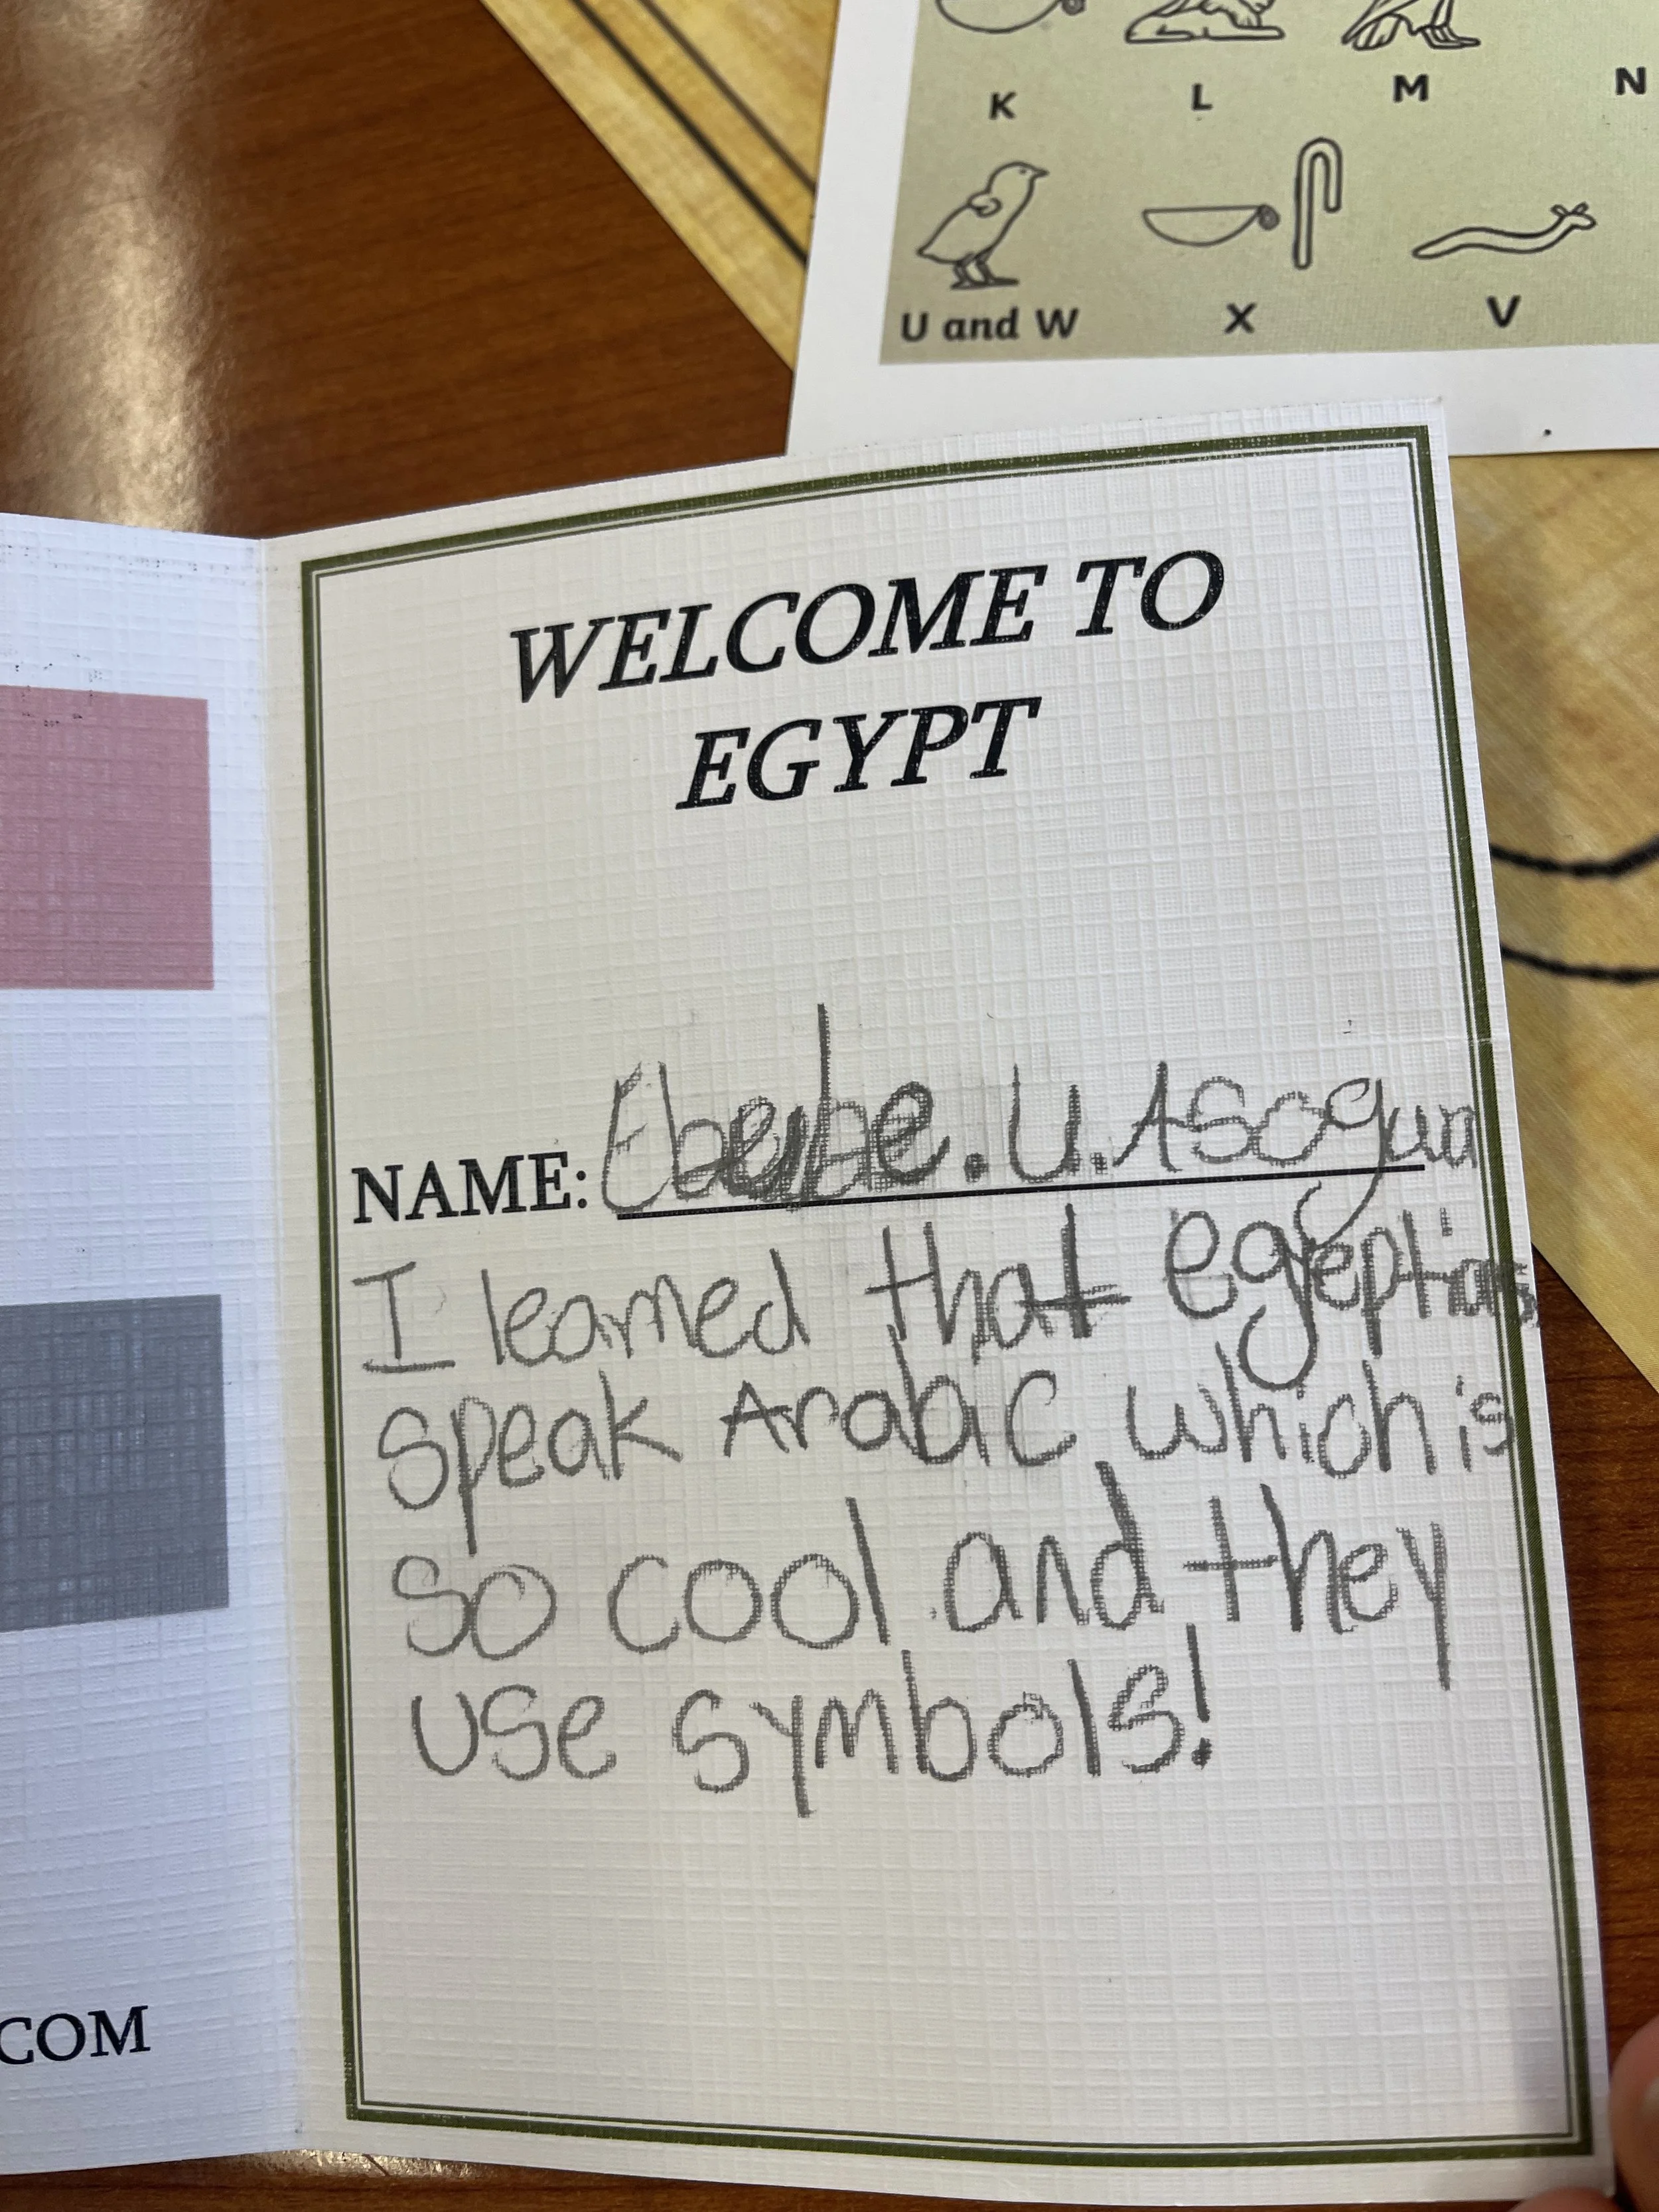 K L M N
U and W X V
WELCOME TO
EGYPT
NAME: . U. Asogwa
I learned that egyeptians
speak Arabic which is
so cool and they
use symbols!
COM